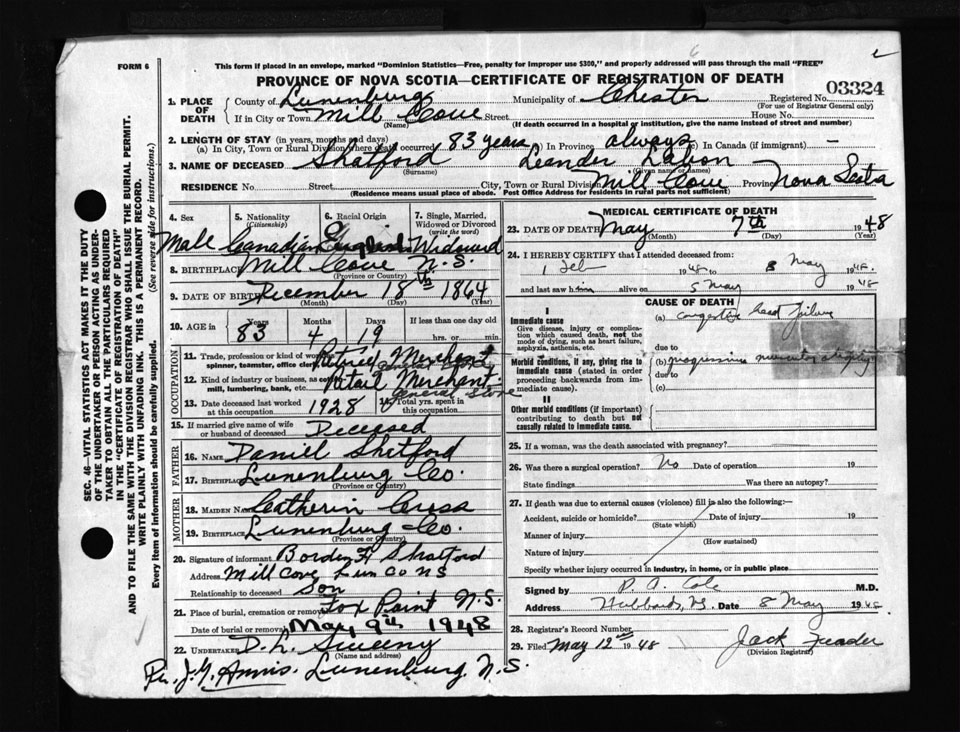 FORM 6
This form if placed in an envelope, marked "Dominion Statistics—Free, penalty for improper use $300," and properly addressed will pass through the mail "FREE"
PROVINCE OF NOVA SCOTIA—CERTIFICATE OF REGISTRATION OF DEATH
03324
1. PLACE OF DEATH
County of Lunenburg Municipality of Chester Registered No.
(For use of Registrar General only)
If in City or Town Mill Cove Street House No.
(Name) (If death occurred in a hospital or institution, give the name instead of street and number)
2. LENGTH OF STAY (in years, months and days)
(a) In City, Town or Rural Division where death occurred 83 years (b) In Province always (c) In Canada (if immigrant) —
3. NAME OF DECEASED Shatford Leander Labon
(Surname) (Given name or names)
RESIDENCE No. Street City, Town or Rural Division Mill Cove Province Nova Scotia
(Residence means usual place of abode. Post Office Address for residents in rural parts not sufficient)
4. Sex 5. Nationality (Citizenship) 6. Racial Origin 7. Single, Married, Widowed or Divorced (write the word)
Male Canadian English Widowed
8. BIRTHPLACE Mill Cove N.S.
(Province or Country)
9. DATE OF BIRTH December 18th 1864
(Month) (Day) (Year)
10. AGE in Years Months Days If less than one day old
83 4 19 hrs. or min.
OCCUPATION
11. Trade, profession or kind of work as spinner, teamster, office clerk, Retired Merchant
12. Kind of industry or business, as mill, lumbering, bank, etc. Retail Merchant General Store
13. Date deceased last worked at this occupation 1928 14. Total yrs. spent in this occupation
15. If married give name of wife or husband of deceased Deceased
FATHER
16. NAME Daniel Shatford
17. BIRTHPLACE Lunenburg Co
(Province or Country)
MOTHER
18. MAIDEN NAME Catherin Cross
19. BIRTHPLACE Lunenburg Co.
(Province or Country)
20. Signature of informant Borden H Shatford
Address Mill Cove Lun Co NS
Relationship to deceased Son
21. Place of burial, cremation or removal Fox Point N.S.
Date of burial or removal May 9th 1948
22. UNDERTAKER D. L. Sweeny
(Name and address)
Per J.G. Annis. Lunenburg N.S.
MEDICAL CERTIFICATE OF DEATH
23. DATE OF DEATH May 7th 1948
(Month) (Day) (Year)
24. I HEREBY CERTIFY that I attended deceased from:
1 Feb 1948 to 8 May 1948.
and last saw him alive on 5 May 1948
CAUSE OF DEATH
I
Immediate cause
Give disease, injury or complication which caused death, not the mode of dying, such as heart failure, asphyxia, asthenia, etc.
(a) congestive heart failure
due to
Morbid conditions, if any, giving rise to immediate cause (stated in order proceeding backwards from immediate cause).
(b) progressive muscular atrophy
due to
(c)
II
Other morbid conditions (if important) contributing to death but not causally related to immediate cause.
25. If a woman, was the death associated with pregnancy?
26. Was there a surgical operation? No Date of operation 19
State findings Was there an autopsy?
27. If death was due to external causes (violence) fill in also the following:—
Accident, suicide or homicide? Date of injury 19
(State which)
Manner of injury
(How sustained)
Nature of injury
Specify whether injury occurred in industry, in home, or in public place
Signed by P. A. Cole M.D.
Address Hubbards, NS. Date 8 May 1948
28. Registrar's Record Number
29. Filed May 12th 1948 Jack
(Division Registrar)
SEC. 46—VITAL STATISTICS ACT MAKES IT THE DUTY
OF THE UNDERTAKER OR PERSON ACTING AS UNDER-
TAKER TO OBTAIN ALL THE PARTICULARS REQUIRED
IN THE "CERTIFICATE OF REGISTRATION OF DEATH"
AND TO FILE THE SAME WITH THE DIVISION REGISTRAR WHO SHALL ISSUE THE BURIAL PERMIT.
WRITE PLAINLY WITH UNFADING INK. THIS IS A PERMANENT RECORD.
Every item of information should be carefully supplied. (See reverse side for instructions.)